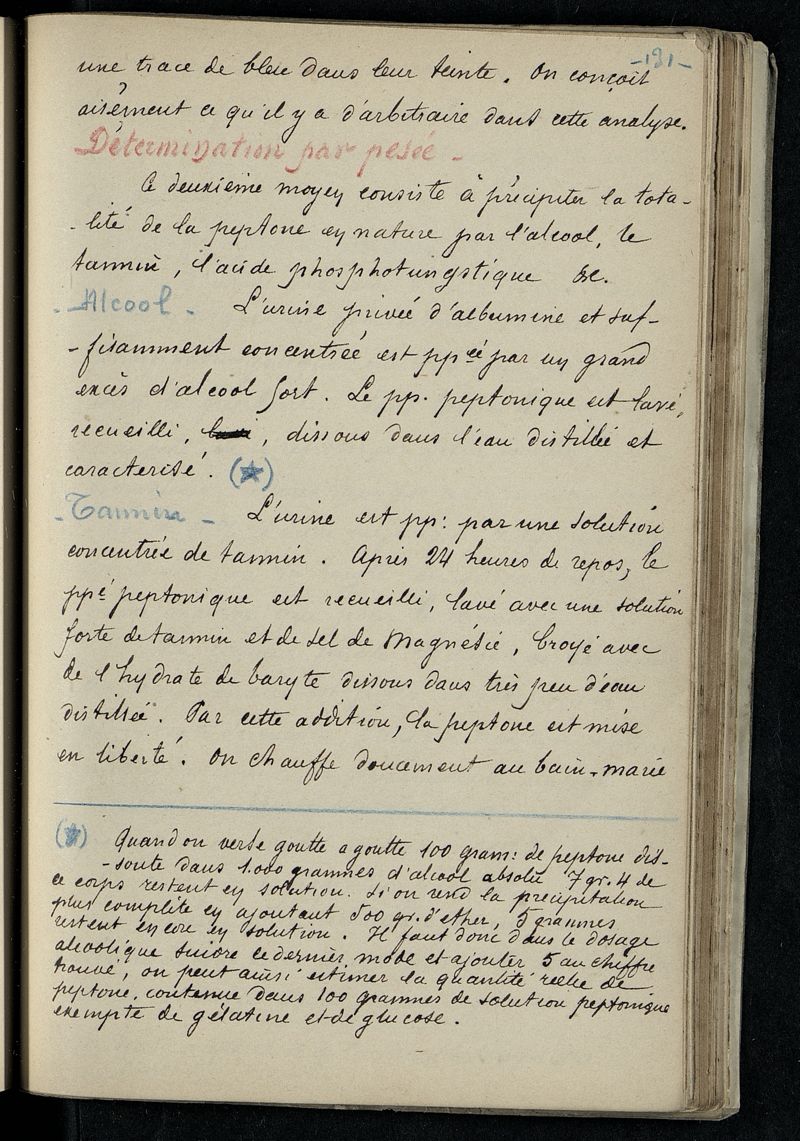 -131-
une trace de bleu dans leur teinte. On conçoit
aisément ce qu'il y a d'arbitraire dans cette analyse.
Détermination par pesée -
Ce deuxième moyen consiste à précipiter la tota-
-lité de la peptone en nature par l'alcool, le
tannin, l'acide phosphotungstique &c.
- Alcool - L'urine privée d'albumine et suf-
-fisamment concentrée est ppcé par un grand
excès d'alcool fort. Le pp. peptonique est lavé,
recueilli, , dissous dans l'eau distillée et
caracterisé. (★)
- Tannin - L'urine est pp: par une solution
concentrée de tannin. Après 24 heures de repos, le
ppé peptonique est recueilli, lavé avec une solution
forte de tannin et de sel de Magnésie, broyé avec
de l'hydrate de baryte dissous dans très peu d'eau
distillée. Par cette addition, la peptone est mise
en liberté. On chauffe doucement au bain-marie
(★) Quand on verse goutte a goutte 100 gram: de peptone dis-
-soute dans 1.000 grammes d'alcool absolu 7 gr. 4 de
ce corps restent en solution. Si on rend la précipitation
plus complète en ajoutant 500 gr. d'ether, 5 grammes
restent encore en solution. Il faut donc dans le dosage
alcoolique suivre ce dernier mode et ajouter 5 au chiffre
trouvé, on peut ainsi estimer la quantité réelle de
peptone contenue dans 100 grammes de solution peptonique
exempte de gélatine et de glucose.